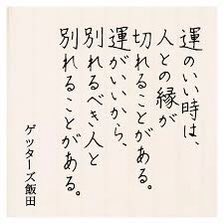 運のいい時は、
人との縁が
切れることがある。
運がいいから、
別れるべき人と
別れることがある。
ゲッターズ飯田